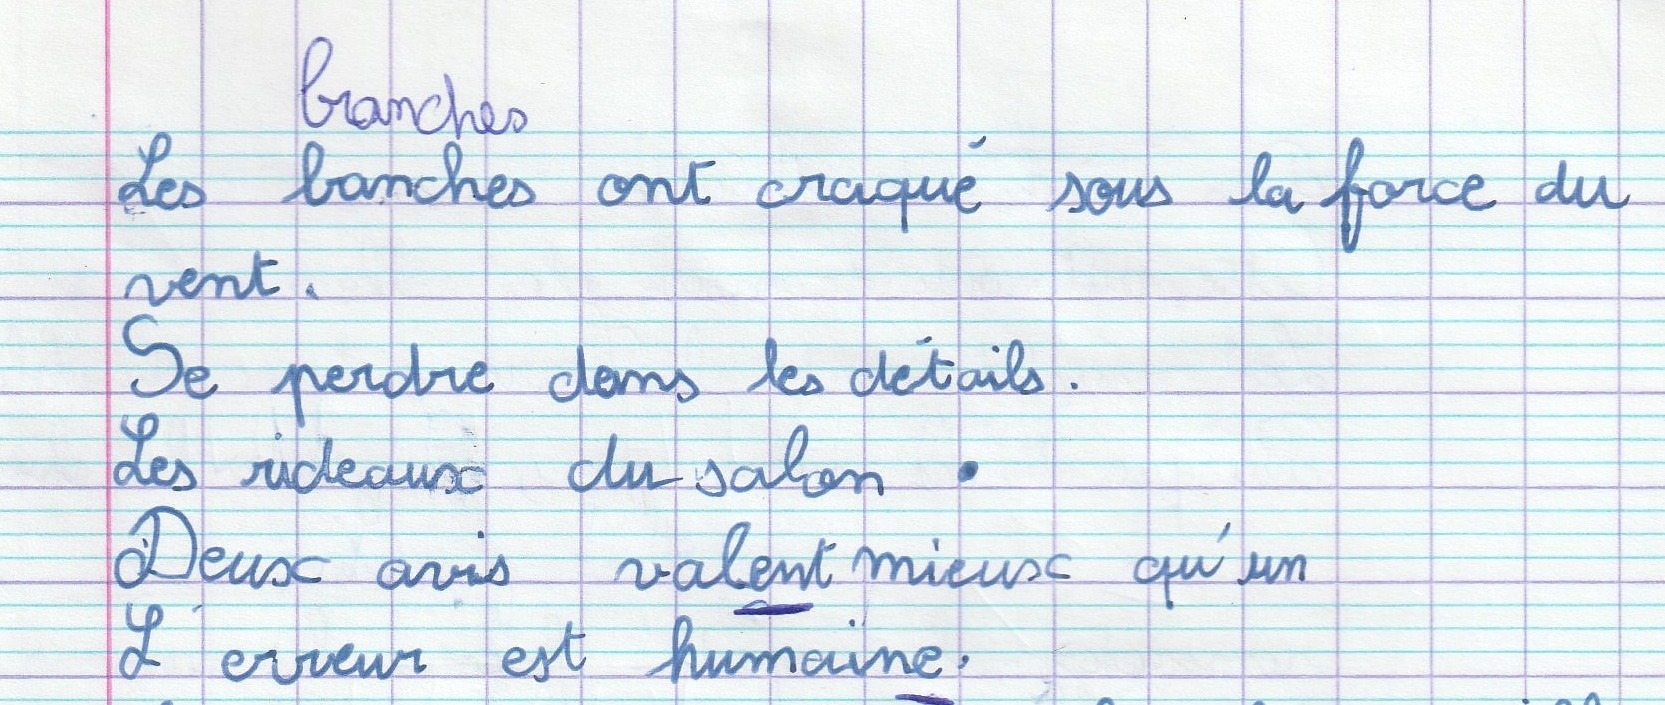 branches
Les banches ont craqué sous la force du
vent.
Se perdre dans les détails.
Les rideaux du salon.
Deux avis valent mieux qu'un
L'erreur est humaine.